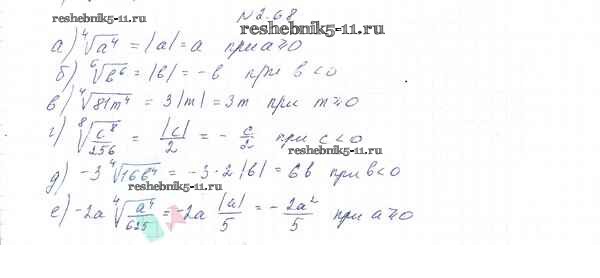 №2.68
reshebnik5-11.ru
reshebnik5-11.ru
а) ⁴√a⁴ = |a| = a при a≥0
б) ⁶√b⁶ = |b| = -b при b<0
в) ⁴√81m⁴ = 3|m| = 3m при m≥0
г) ⁸√c⁸/256 = |c|/2 = - c/2 при c<0
reshebnik5-11.ru
д) -3 ⁴√16b⁴ = -3·2|b| = 6b при b<0
reshebnik5-11.ru
е) -2a ⁴√a⁴/625 = -2a |a|/5 = - 2a²/5 при a≥0